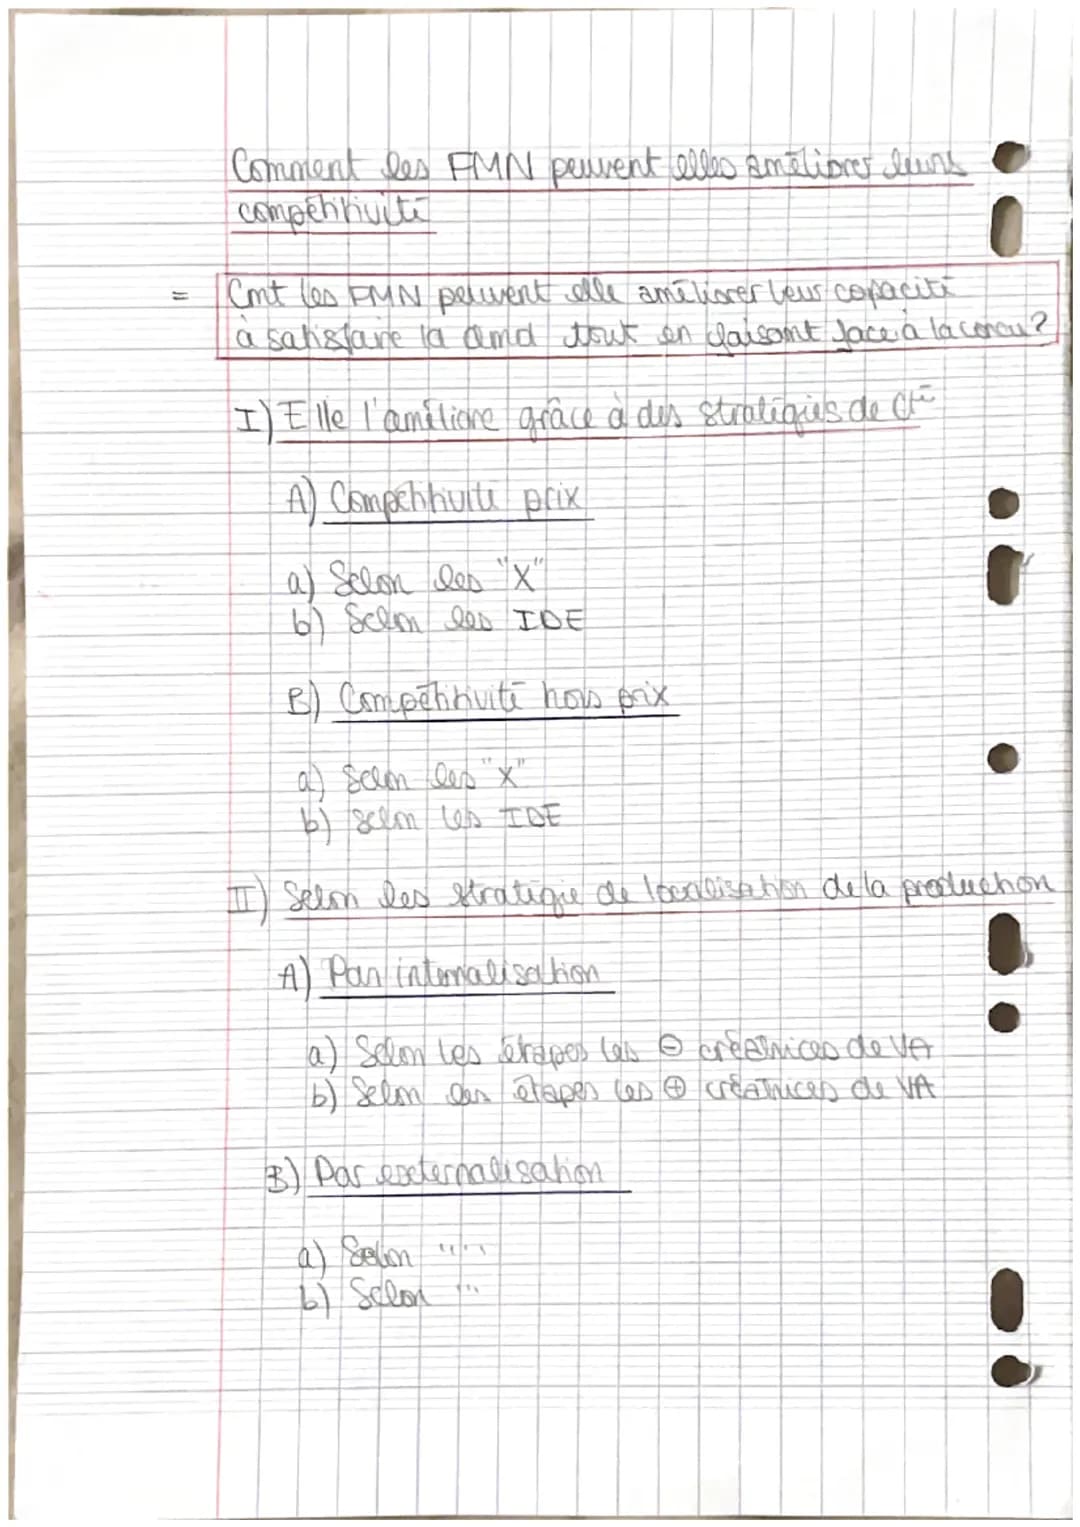 Comment les FMN peuvent elles améliorer leurs
compétitivité
= Cmt les FMN peuvent elle améliorer leur capacité
à satisfaire la dmd tout en faisant face à la concu?
I) Elle l'améliore grâce à des stratégies de cté
A) Compétitivité prix
a) Selon les "X"
b) Selon les IDE
B) Compétitivité hors prix
a) Selon les "X"
b) Selon les IDE
II) Selon les stratégie de localisation de la production
A) Par internalisation
a) Selon les étapes les ⊖ créatrices de VA
b) Selon les étapes les ⊕ créatrices de VA
B) Par externalisation
a) Selon " " "
b) Selon " "